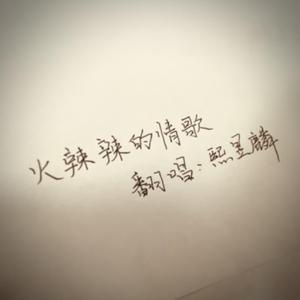 火辣辣的情歌
翻唱:熙昱麟